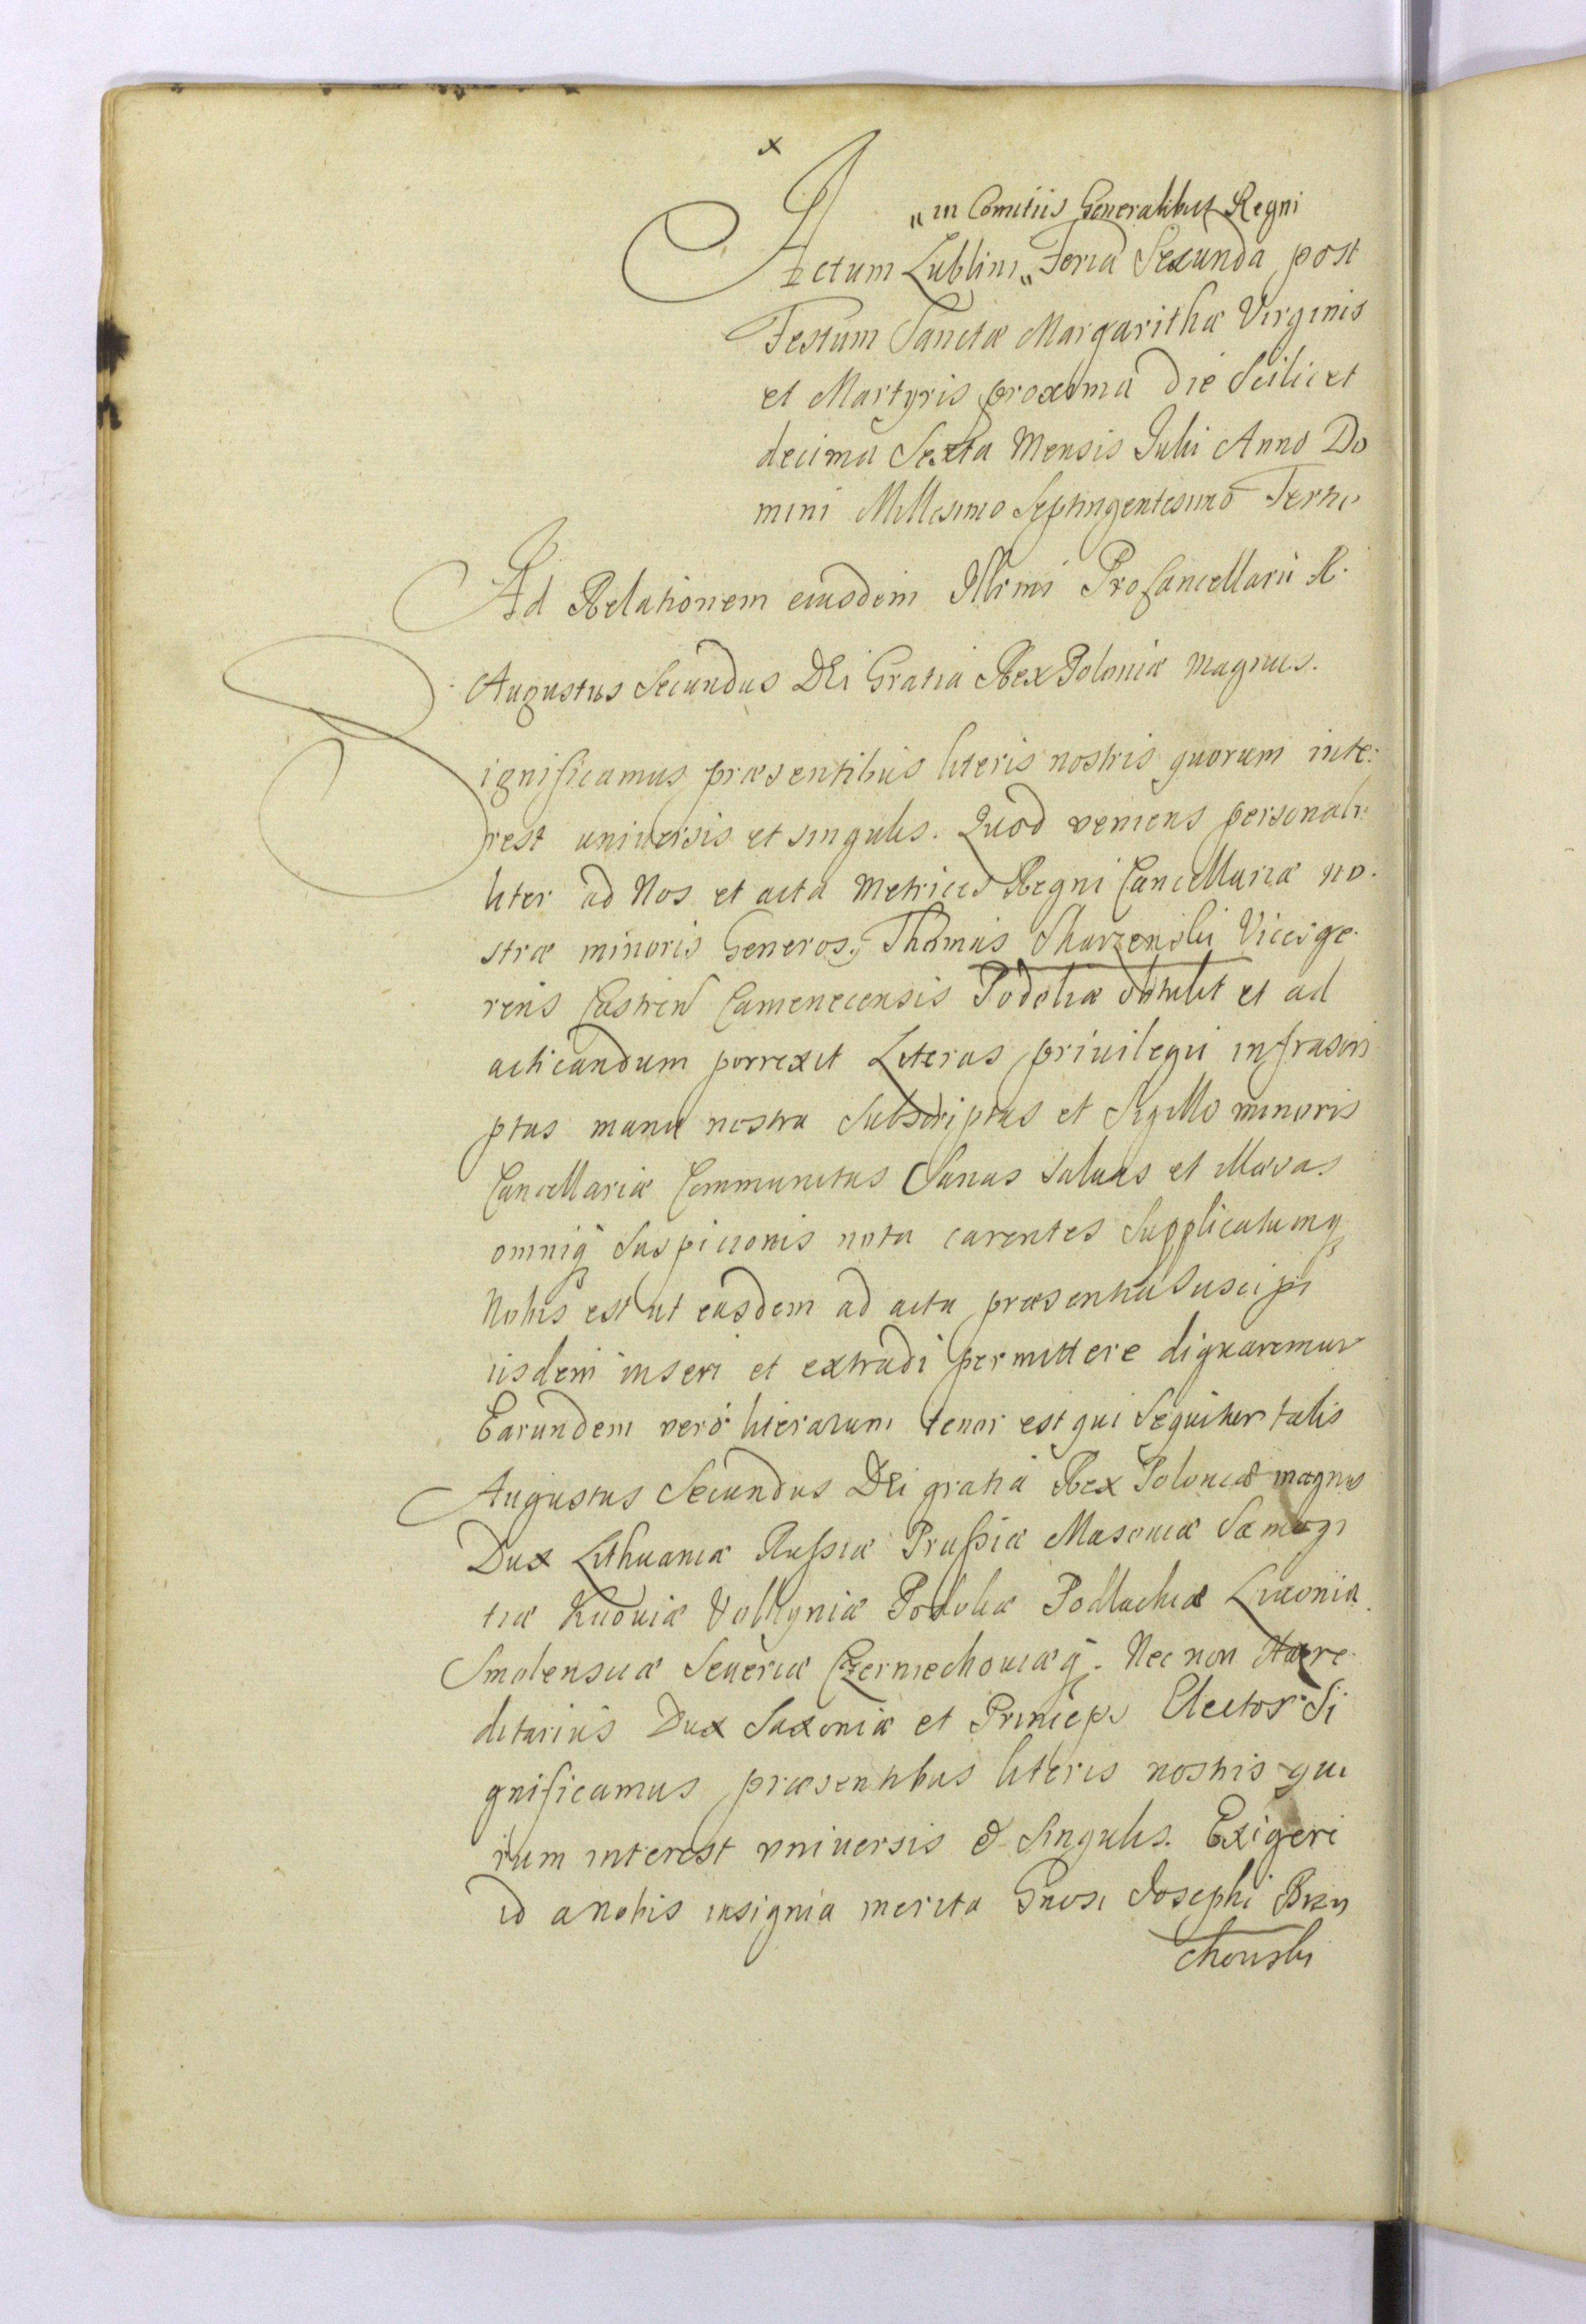 x
„in Comitiis Generalibus Regni
Actum Lublini „ Feria Secunda post
Festum Sanctæ Margarithæ Virginis
et Martyris proxima die Scilicet
decima Sexta Mensis Julii Anno Do
mini Millesimo Septingentesimo Tertio
Ad Relationem eiusdem Illrmi ProCancellarii R.
Augustus Secundus DEi Gratia Rex Poloniæ magnus.
Significamus præsentibus literis nostris quorum inte:
rest universis et singulis. Quod veniens personali:
liter ad Nos et acta Metrices Regni Cancellariæ no.
stræ minoris Generos. Thomas Skarzenski Vicesge.
rens Castren Camenecensis Podoliæ obtulit et ad
acticandum porrexit Literas privilegii infrascri
ptas manu nostra Subscriptas et Sigillo minoris
Cancellariæ Communitas Sanas Saluas et illæsas
omniq Suspicionis nota carentes Supplicatumq
Nobis est ut easdem ad acta præsentia Suscipi
iisdem inseri et extradi permittere dignaremur
Earundem vero literarum tenor est qui Sequitur talis
Augustus Secundus DEi gratia Rex Poloniæ magnus
Dux Lithuaniæ Russiæ Prussiæ Masouiæ Samogi
tiæ Kiiouiæ Volhyniæ Podoliæ Podlachiæ Liuoniæ
Smolensciæ Seueriæ Czerniechouiæq. Nec non Hære.
ditarius Dux Saxoniæ et Princeps Elector Si
gnificamus præsentibus literis nostris quo
rum interest vniuersis & Singulis. Exigere
id a nobis insignia merita Gnosi Josephi Brzu
chouski